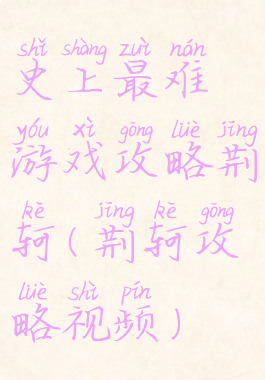 shǐ shàng zuì nán
史上最难
yóu xì gōng lüè jīng
游戏攻略荆
kē jīng kē gōng
轲(荆轲攻
lüè shì pín
略视频)